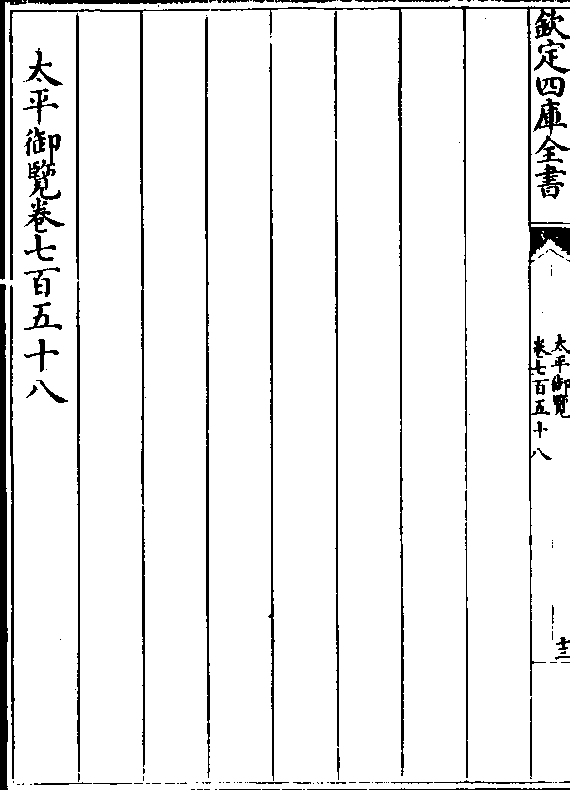 欽定四庫全書
太平御覽
卷七百五十八
十三
太平御覽卷七百五十八